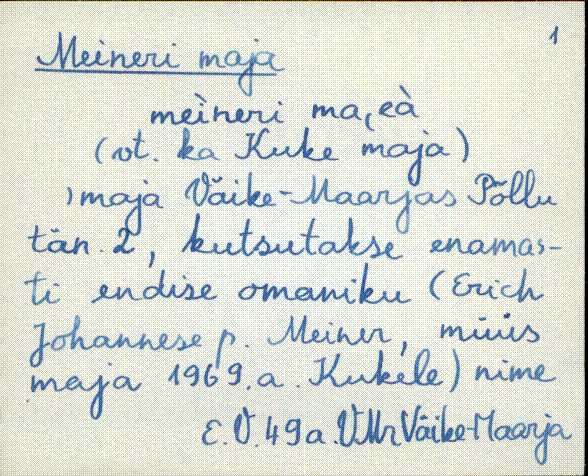 1
Meineri maja
mèineri ma(eà
(vt. ka Kuke maja)
)maja Väike-Maarjas Põllu
tän. 2, kutsutakse enamas-
ti endise omaniku (Erich
Johannese p. Meiner, müüs
maja 1969. a. Kukele) nime
E.V. 49a. VMr Väike-Maarja